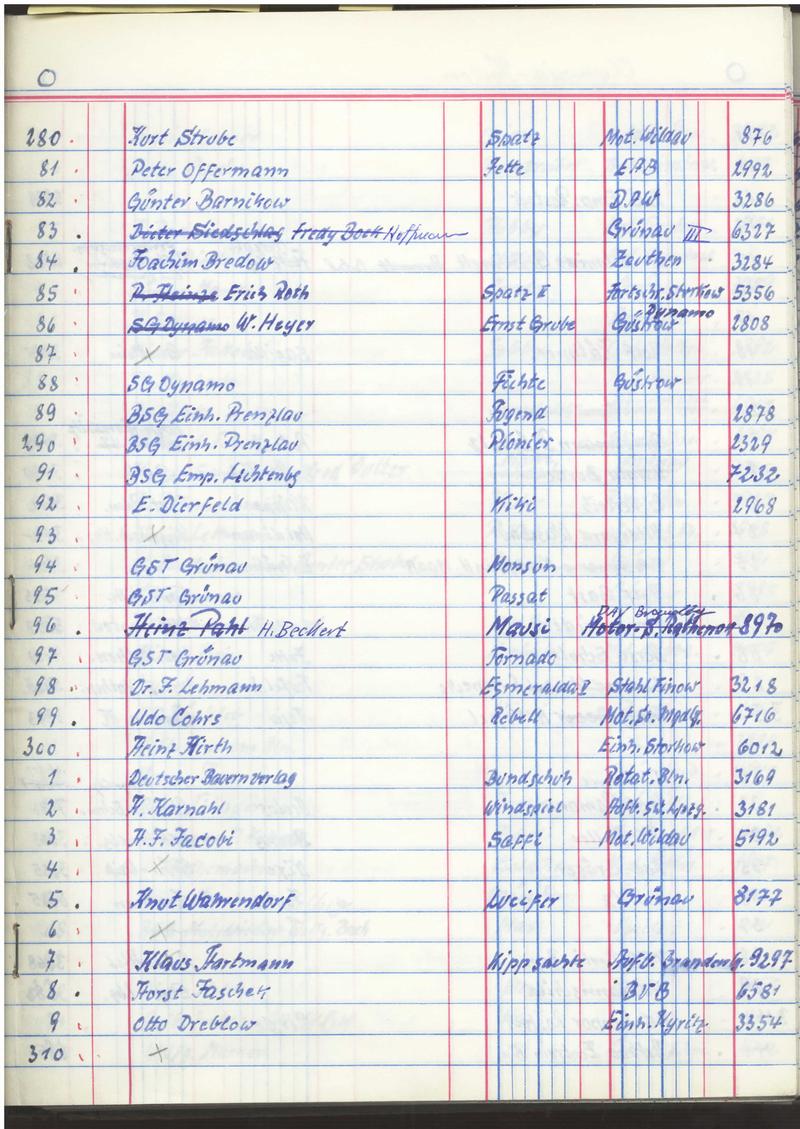 O
280 Kurt Strube Spatz Mot. Wildau 876
81 Peter Offermann Fette EAB 2992
82 Günter Barnikow DAW 3286
83 Dieter Siedschlag Fredy Bock Hoffmann Grünau III 6327
84 Joachim Bredow Zeuthen 3284
85 P. Heinze Erich Roth Spatz II Fortschr. Storkow 5356
86 SG Dynamo W. Heyer Ernst Grube Dynamo Güstrow 2808
87 X
88 SG Dynamo Fichte Güstrow
89 BSG Einh. Prenzlau Jugend 2878
290 BSG Einh. Prenzlau Pionier 2329
91 BSG Emp. Lichtenbg 7232
92 E. Dierfeld Kiki 2968
93 X
94 GST Grünau Monsun
95 GST Grünau Passat
96 Heinz Pahl H. Beckert Mausi Motor-S. Rathenow 8970
97 GST Grünau Tornado
98 Dr. F. Lehmann Esmeralda II Stahl Finow 3218
99 Udo Cohrs Rebell Mot. Sü. Mgdbg. 6716
300 Heinz Hirth Einh. Storkow 6012
1 Deutscher Bauernverlag Bundschuh Rotat. Bln. 3169
2 H. Karnahl Windspiel Aufb. Sw. Lpzg. 3181
3 H. F. Jacobi Saffi Mot. Wildau 5192
4 X
5 Knut Wahrendorf Lucifer Grünau 8177
6 X
7 Klaus Hartmann Kippsachte Aufb. Brandenbg. 9297
8 Horst Faschek BVB 6581
9 Otto Dreblow Einh. Kyritz 3354
310 X